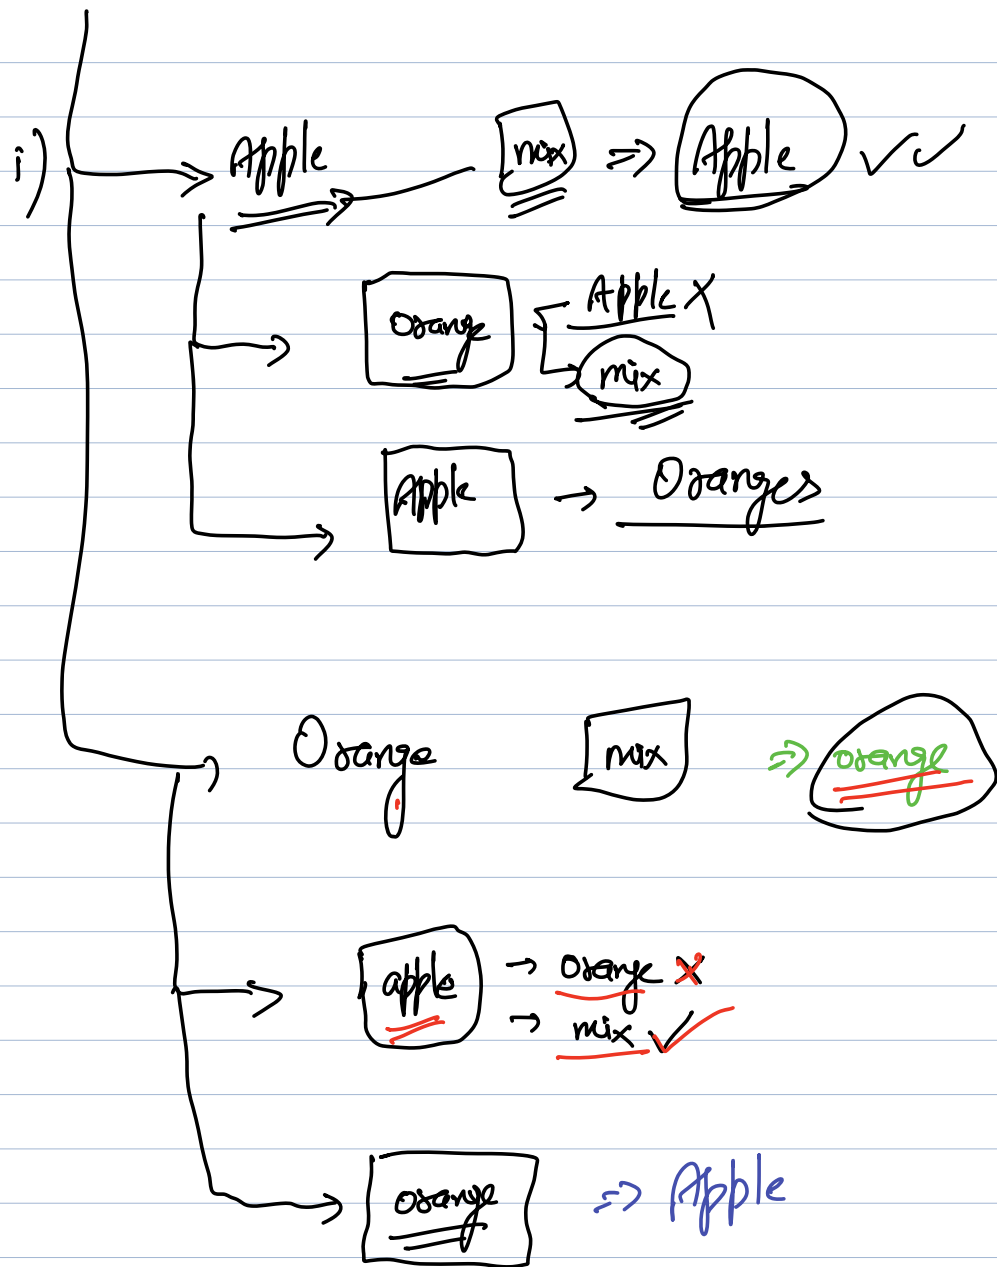 i) Apple mix ⇒ Apple ✓✓
Orange Apple X
mix
Apple → Oranges
Orange mix ⇒ orange
apple → orange X
→ mix ✓
orange ⇒ Apple